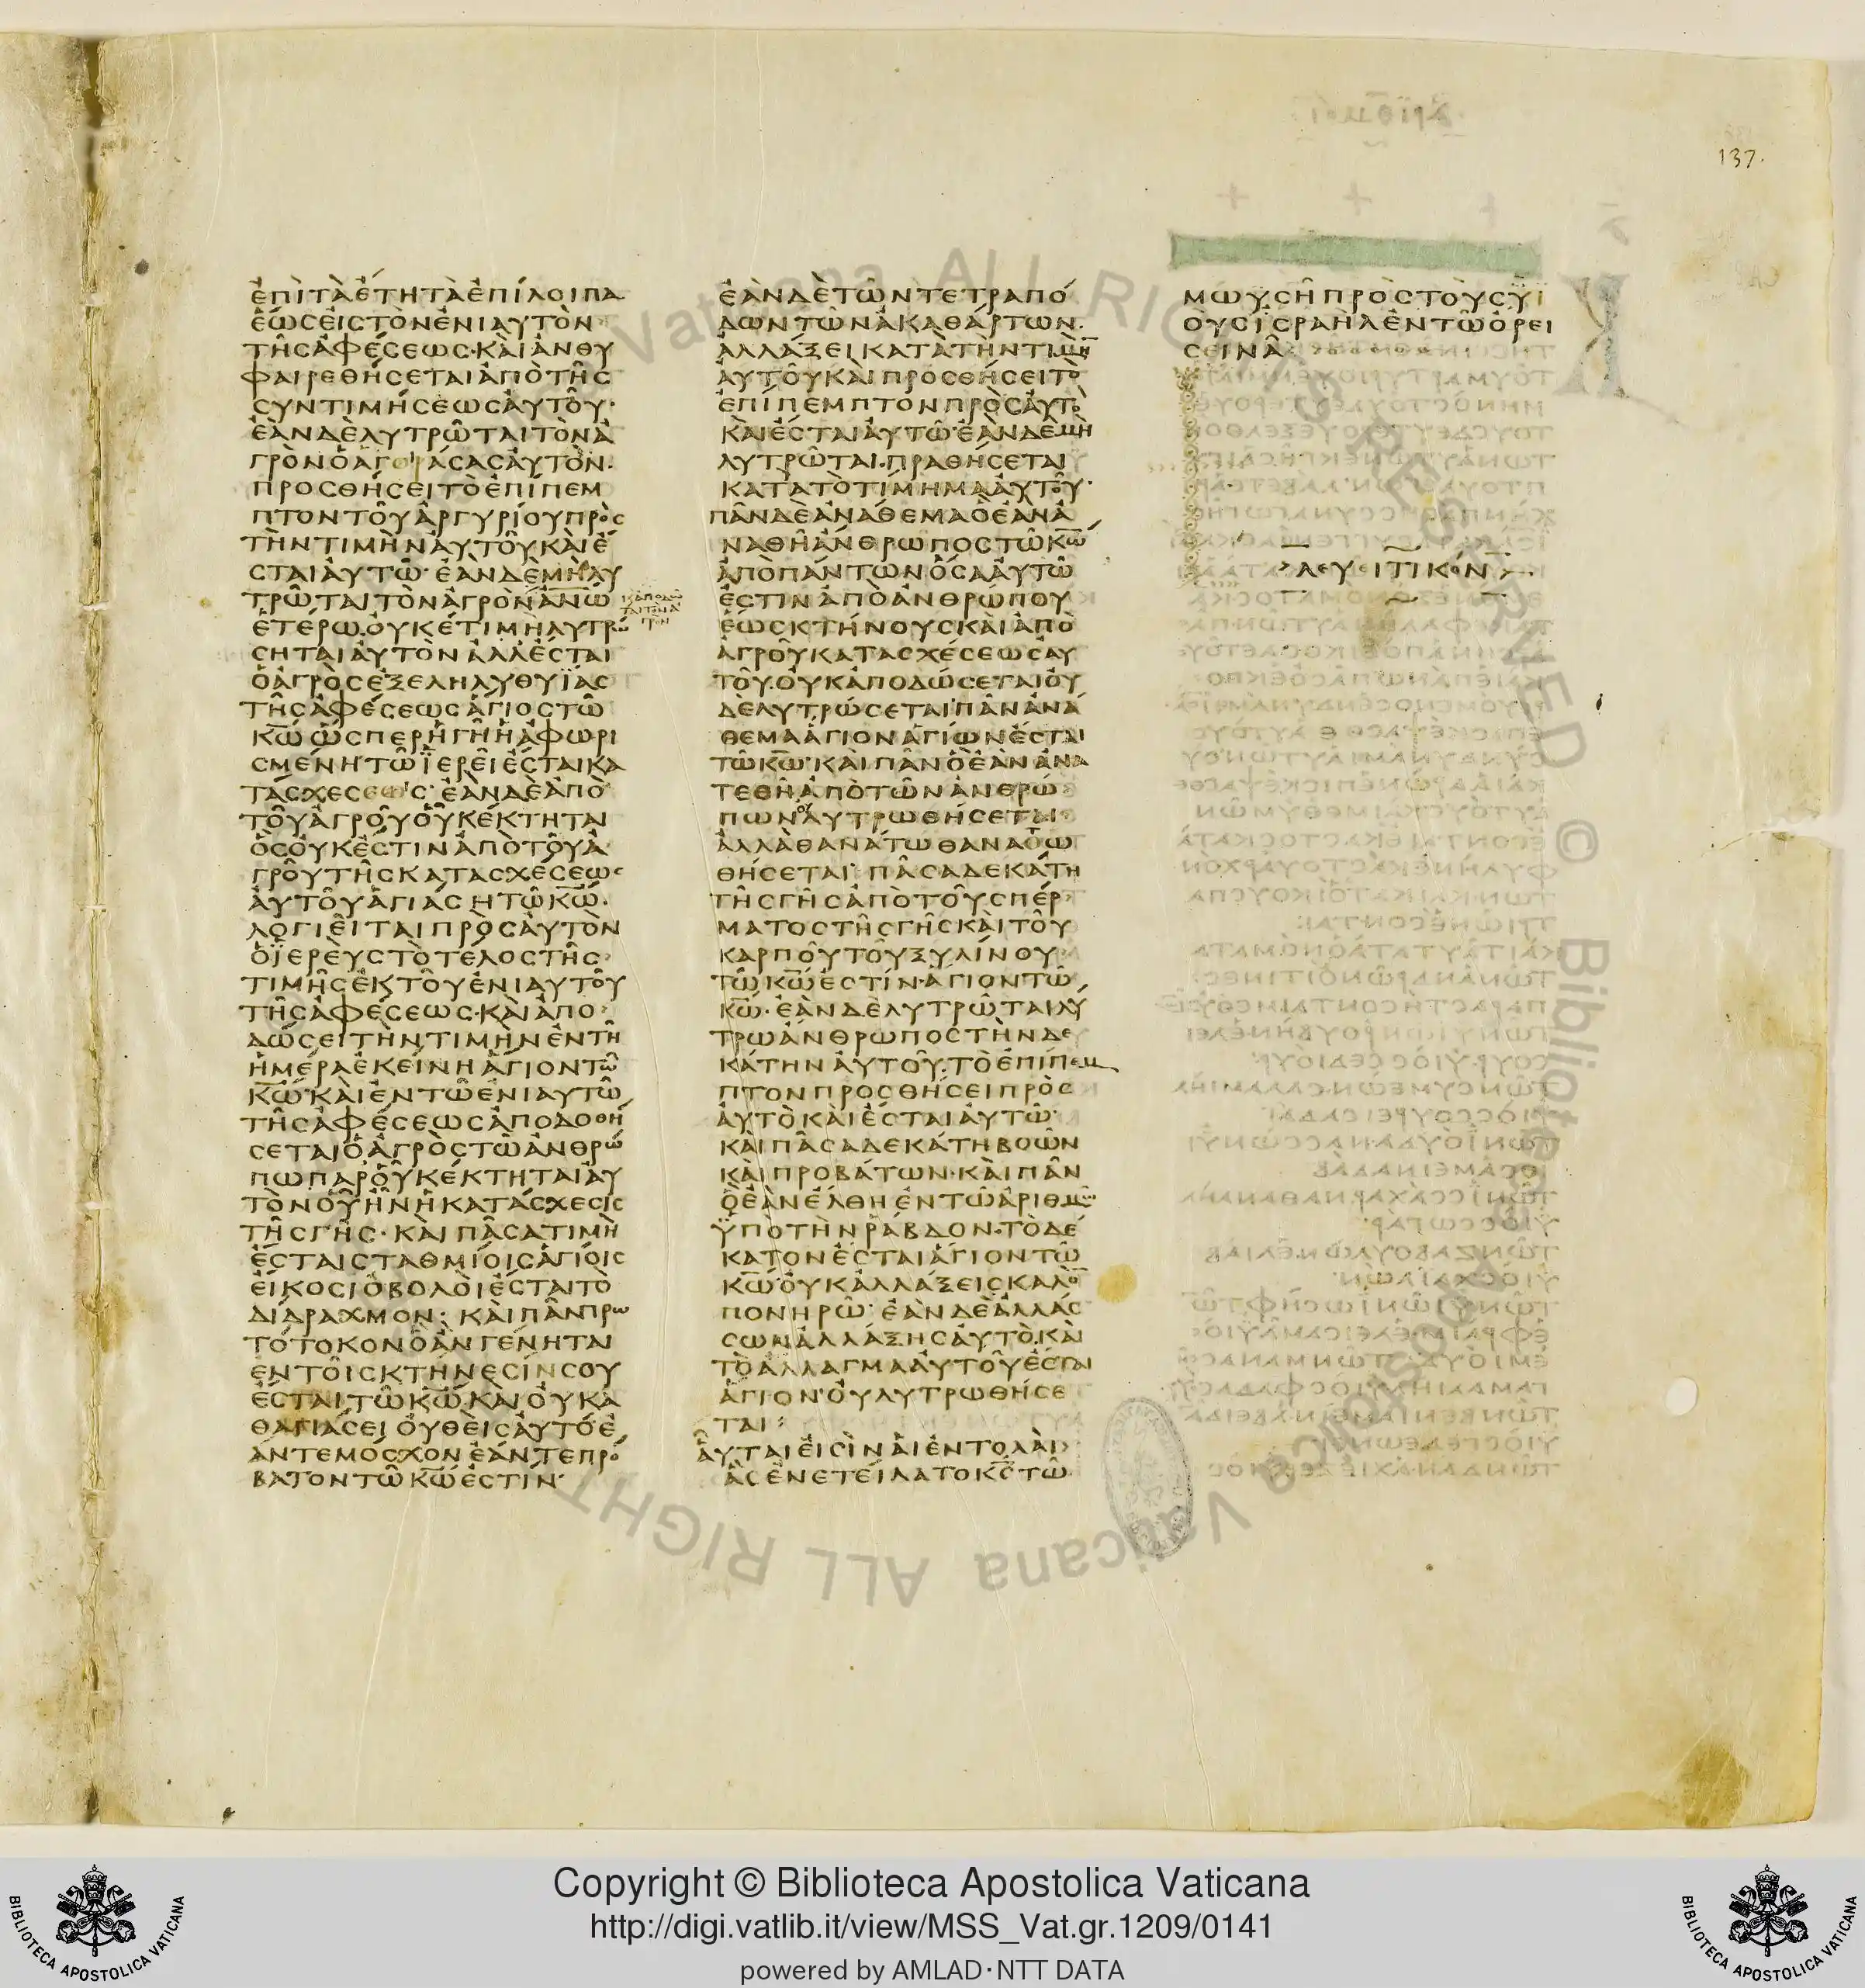 137.
ἐπὶ τὰ ἔτη τὰ ἐπίλοιπα
ἕως εἰς τὸν ἐνιαυτὸν
τῆς ἀφέσεως· καὶ ἀνθυ
φαιρεθήσεται ἀπὸ τῆς
συντιμήσεως αὐτοῦ·
ἐὰν δὲ λυτρῶται τὸν ἀ
γρὸν ὁ ἀγοράσας αὐτὸν·
προσθήσει τὸ ἐπίπεμ
πτον τοῦ ἀργυρίου πρὸς
τὴν τιμὴν αὐτοῦ καὶ ἔ
σται αὐτῷ· ἐὰν δὲ μὴ λυ
τρῶται τὸν ἀγρὸν ἀν͞ω
ἑτέρω οὐκέτι μὴ λυτρώ
σηται αὐτὸν ἀλλ ἔσται
ὁ ἀγρὸς ἐξεληλυθυΐας
τῆς ἀφέσεως ἅγιος τῶ
κ͞ω ὥσπερ ἡ γῆ ἡ ἀφωρι
σμένη· τῶ ἱερεῖ ἔσται κα
τάσχεσεως· ἐὰν δὲ ἀπὸ
τοῦ ἀγροῦ οὗ κέκτηται
ὃς οὐκ ἔστιν ἀπὸ τοῦ ἀ
γροῦ τῆς κατασχέσεως
αὐτοῦ ἁγιάση τῶ κ͞ω·
λογιεῖται πρὸς αὐτὸν
ὁ ἱερεὺς τὸ τέλος τῆς
τιμῆς ἐκ τοῦ ἐνιαυτοῦ
τῆς ἀφέσεως· καὶ ἀπο
δώσει τὴν τιμὴν ἐν τῆ
ἡμέρα ἐκείνη ἅγιον τῶ
κ͞ω· καὶ ἐν τῶ ἐνιαυτῶ
τῆς ἀφέσεως ἀποδοθή
σεται ὁ ἀγρὸς τῶ ἀνθρώ
πω παρ οὗ κέκτηται αὐ
τὸν οὗ ἦν ἡ κατάσχεσις
τῆς γῆς· καὶ πᾶσα τιμὴ
ἔσται σταθμίοις ἁγίοις
εἴκοσι ὀβολοὶ ἔσται τὸ
δίδραχμον· καὶ πᾶν πρω
τότοκον ὃ ἂν γένηται
ἐν τοῖς κτήνεσίν σου
ἔσται τῶ κ͞ω· καὶ οὐ κα
θαγιάσει οὐθεὶς αὐτό· ἐ
άν τε μόσχον ἐάν τε πρό
βατον τῶ κ͞ω ἐστίν·
ἐὰν δὲ τῶν τετραπό
δων τῶν ἀκαθάρτων·
ἀλλάξει κατὰ τὴν τιμὴν
αὐτοῦ καὶ προσθήσει τὸ
ἐπίπεμπτον πρὸς αὐτὸ
καὶ ἔσται αὐτῶ· ἐὰν δὲ μὴ
λυτρῶται· πραθήσεται
κατὰ τὸ τίμημα αὐτοῦ·
πᾶν δὲ ἀνάθεμα ὃ ἐὰν ἀ
ναθῆ ἄνθρωπος τῶ κ͞ω
ἀπὸ πάντων ὅσα αὐτῶ
ἐστιν ἀπὸ ἀνθρώπου
ἕως κτήνους καὶ ἀπὸ
ἀγροῦ κατασχέσεως αὐ
τοῦ· οὐκ ἀποδώσεται οὐ
δὲ λυτρώσεται· πᾶν ἀνά
θεμα ἅγιον ἁγίων ἔσται
τῶ κ͞ω· καὶ πᾶν ὃ ἐὰν ἀνα
τεθῆ ἀπὸ τῶν ἀνθρώ
πων οὐ λυτρωθήσεται
ἀλλὰ θανάτω θανατω
θήσεται· πᾶσα δεκάτη
τῆς γῆς ἀπὸ τοῦ σπέρ
ματος τῆς γῆς καὶ τοῦ
καρποῦ τοῦ ξυλίνου
τῶ κ͞ω ἐστίν· ἅγιον τῶ
κ͞ω· ἐὰν δὲ λυτρῶται λύ
τρω ἄνθρωπος τὴν δε
κάτην αὐτοῦ· τὸ ἐπίπεμ
πτον προσθήσει πρὸς
αὐτὸ καὶ ἔσται αὐτῶ·
καὶ πᾶσα δεκάτη βοῶν
καὶ προβάτων· καὶ πᾶν
ὃ ἐὰν ἔλθη ἐν τῶ ἀριθμῶ
ὑπὸ τὴν ῥάβδον· τὸ δέ
κατον ἔσται ἅγιον τῶ
κ͞ω· οὐκ ἀλλάξεις καλὸν
πονηρῶ· ἐὰν δὲ ἀλλάσ
σων ἀλλάξης αὐτό· καὶ
τὸ ἄλλαγμα αὐτοῦ ἔσται
ἅγιον· οὐ λυτρωθήσε
ται:
αὗταί εἰσὶν αἱ ἐντολαὶ
ἃς ἐνετείλατο κ͞ς τῶ
Μωυσῆ πρὸς τοὺς υἱ
οὺς ἰσραὴλ ἐν τῶ ὄρει
σεινᾶ
λευειτικόν
Copyright © Biblioteca Apostolica Vaticana
http://digi.vatlib.it/view/MSS_Vat.gr.1209/0141
powered by AMLAD·NTT DATA
BIBLIOTECA APOSTOLICA VATICANA
BIBLIOTECA APOSTOLICA VATICANA